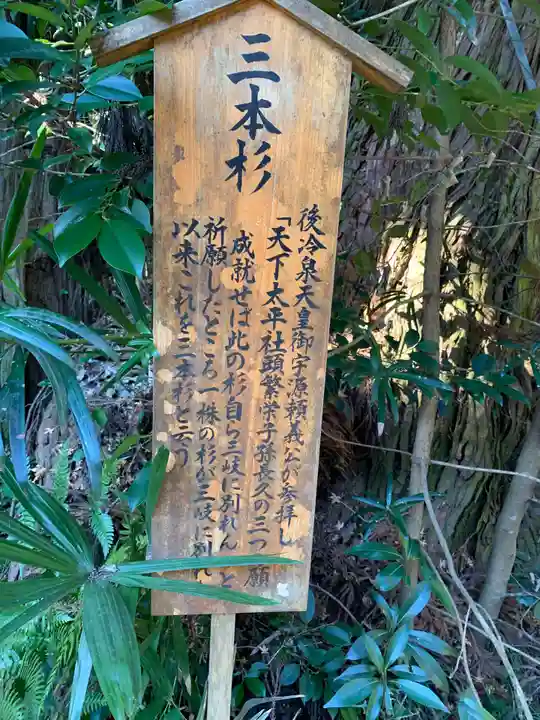 三本杉
後冷泉天皇御宇源頼義公が参拝し
「天下太平社頭繁栄子孫長久の三つの願
成就せば此の杉自ら三岐に別れん」と
祈願したところ一株の杉が三岐に別て
以来これを三本杉と云う